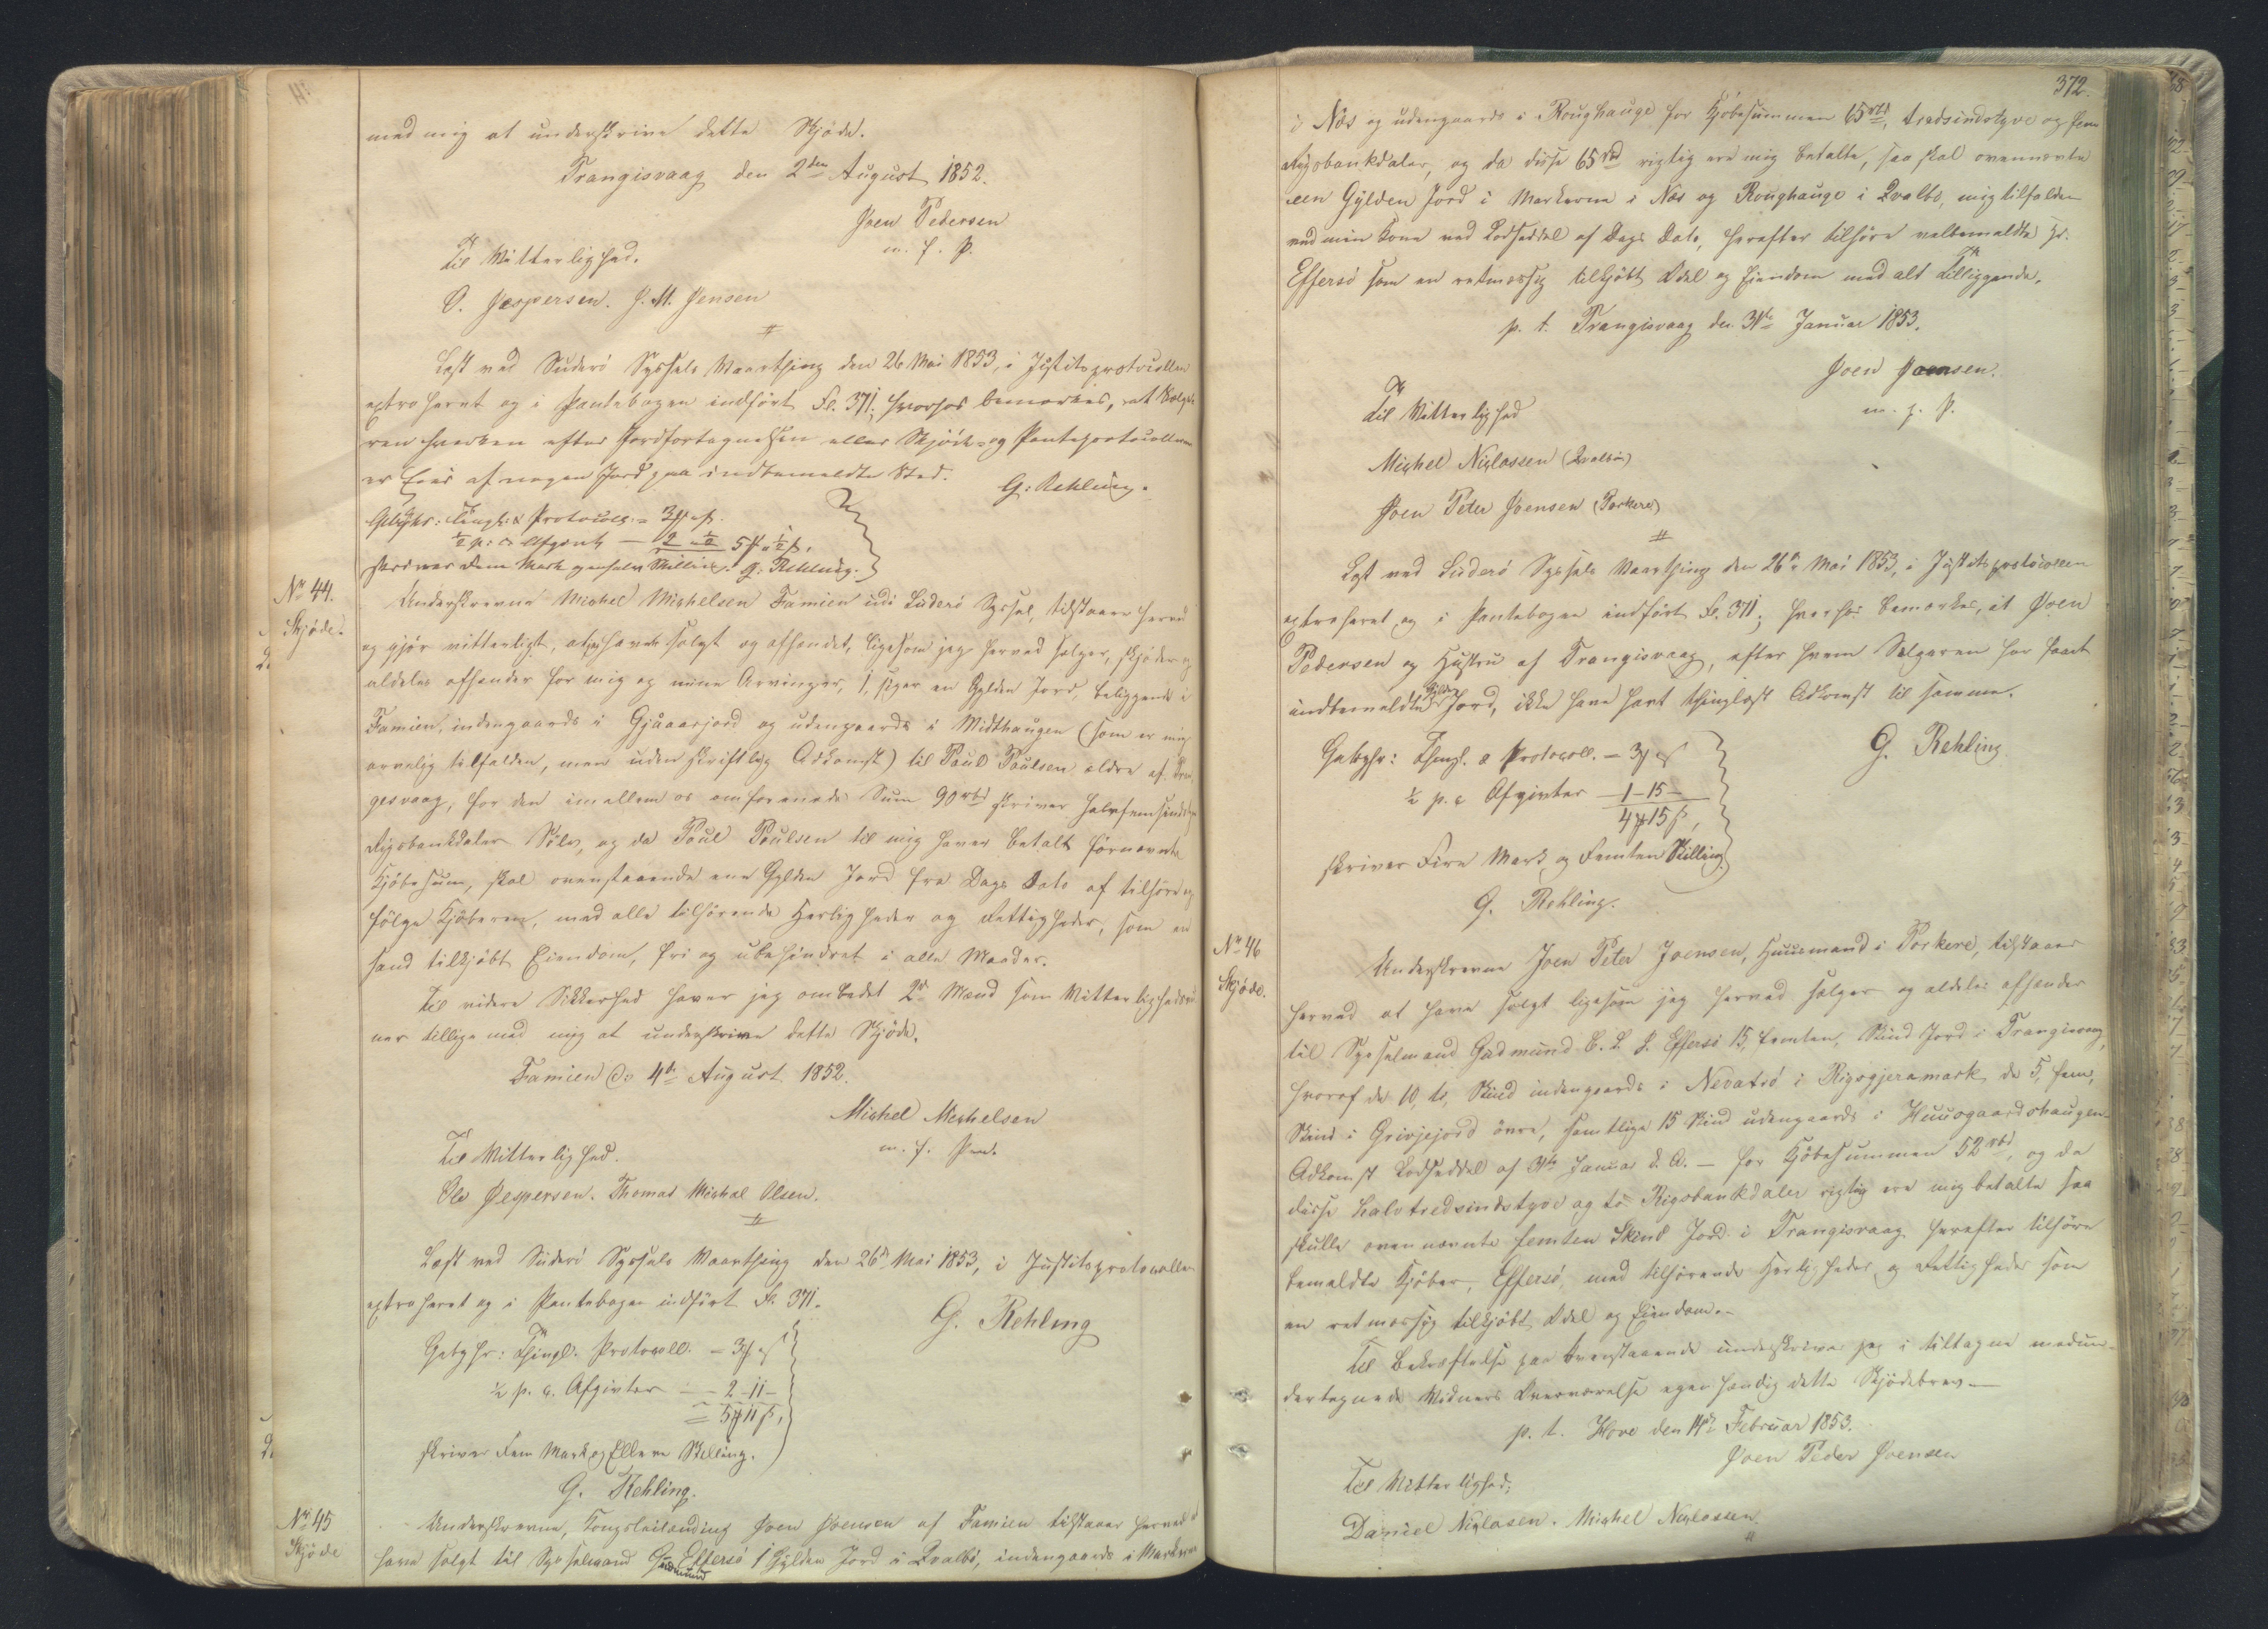 med mig at underskrive dette Skjöde.
Trangisvaag den 2den August 1852.
Joen Pedersen
m. f. P.
Til Vitterlighed.
O. Jespersen. J. M. Jensen
Læst ved Suderö Syssels Vaarthing den 26 Mai 1853, i Justitsprotocollen
extraheret og i Pantebogen indført Fol. 371; hvorhos bemærkes, at Sælge-
ren hverken efter Jordfortegnelsen eller Skjöde- og Panteprotocollerne
er Eier af nogen Jord paa indbemeldte Sted.
G: Rehling.
Gebyhr: Thingl: & Protocol: = 3 ß
½ p: c: Afgivt — 2
skriver Fem Mark Skilling. G. Rehling.
No 44.
Skjöde.
Underskrevne Michel Michelsen Famien udi Suderö Syssel, tilstaaer herved
og gjør vitterligt, at have solgt og afhændet, ligesom jeg herved sælger, skjöder og
aldeles afhænder fra mig og mine Arvinger, 1, siger en Gylden Jord, beliggende i
Famien, indengaards i Gjåaarjord og udengaards i Midthaugen (som er mig
arvelig tilfalden, men uden skriftlig Adkomst) til Poul Poulsen ældre af Tran-
gesvaag, for den imellem os omforenede Sum 90 rbd skriver halvfemsindstyve
Rigsbankdaler Sølv, og da Poul Poulsen til mig haver betalt førnævnte
Kjöbesum, skal ovenstaaende ene Gylden Jord fra Dags Dato af tilhøre og
følge Kjöberen, med alle tilhørende Herligheder og Rettigheder, som en
sand tilkjöbt Eiendom, fri og ubehindret i alle Maader.
Til videre Sikkerhed haver jeg ombedet 2de Mænd som Vitterligheds vid-
ner tillige med mig at underskrive dette Skjöde.
Famien d. 4de August 1852.
Michel Michelsen
m. f. Pen.
Til Vitterlighed.
Ole Jespersen. Thomas Michal Olsen.
Læst ved Süderö Syssels Vaarthing den 26de Mai 1853, i Justitsprotocollen
extraheret og i Pantebogen indført Fol. 371.
G. Rehling
Gebyhr: Thingl. Protocoll. = 3 ß
½ p. c. Afgivter — 2-11-
= 5 11 ß,
skriver Fem Mark og Elleve Skilling.
G. Rehling.
No 45
Skjöde
Underskrevne, Kongsleilænding Joen Joensen af Famien tilstaaer herved at
have solgt til Sysselmand Gudmund Effersö 1 Gylden Jord i Qvalbö, indengaards i Markerne
372.
i Næs og udengaards i Roughauge for Kjöbesummen 65 rbd, tredsindstyve og fem
Rigsbankdaler, og da disse 65 rbd rigtig ere mig betalte, saa skal ovennævnte
een Gylden Jord i Markerne i Næs og Roughauge i Qvalbö, mig tilfalden
ved min Kone ved Lodseddel af Dags Dato, herefter tilhøre velbemeldte Hr.
Effersö som en retmæssig tilkjöbt Odel og Eiendom med alt Tilliggende.
p. t. Trangisvaag den 31te Januar 1853.
Joen Joensen.
m. f. P.
Til Vitterlighed
Michel Niclassen (Qvalbö)
Joen Peter Joensen (Porkere)
Læst ved Suderö Syssels Vaarthing den 26de Mai 1853, i Justitsprotocollen
extraheret og i Pantebogen indført Fol. 371; hvorhos bemærkes, at Joen
Pedersen og Hustru af Trangisvaag, efter hvem Sælgeren har faaet
indbemeldte Gylden Jord, ikke have havt thinglæst Adkomst til samme.
G. Rehling
Gebyhr: Thingl. & Protocoll. = 3 ß
½ p. c Afgivter — 1-15-
4 15 ß,
skriver Fire Mark og Femten Skilling.
G. Rehling.
No 46
Skjöde.
Underskrevne Joen Peter Joensen, Huusmand i Porkere, tilstaaer
herved at have solgt ligesom jeg herved sælger og aldeles afhænder
til Sysselmand Gudmund C. L. J. Effersö 15, femten, Skind Jord i Trangisvaag,
hvoraf de 10, ti, Skind indengaards i Nevatrö i Rigsgjeramark, de 5, fem,
Skind i Grivjejord övre, samtlige 15 Skind udengaards i Huusgaardshaugen
Adkomst Lodseddel af 31te Januar d. A. — for Kjöbesummen 52 rbd, og da
disse halvtredsindstyve og to Rigsbankdaler rigtig ere mig betalte saa
skulle ovennævnte femten Skind Jord i Trangisvaag herefter tilhøre
bemeldte Kjöber, Effersö, med tilhørende Herligheder og Rettigheder som
en retmæssig tilkjöbt Odel og Eiendom.
Til Bekræftelse paa Ovenstaaende underskriver jeg i tiltagne medun-
dertegnede Vidners Overværelse egenhændig dette Skjödebrev —
p. t. Hove den 14de Februar 1853.
Joen Peder Joensen
Til Vitterlighed;
Daniel Niclasen. Michel Niclassen.